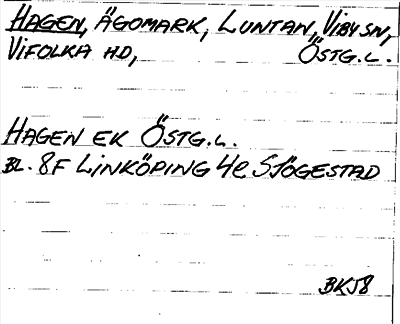 HAGEN, ÄGOMARK, LUNTAN, VIBY SN,
VIFOLKA HD, ÖSTG.L.
HAGEN EK ÖSTG.L.
BL. 8F LINKÖPING 4e SJÖGESTAD
BK58